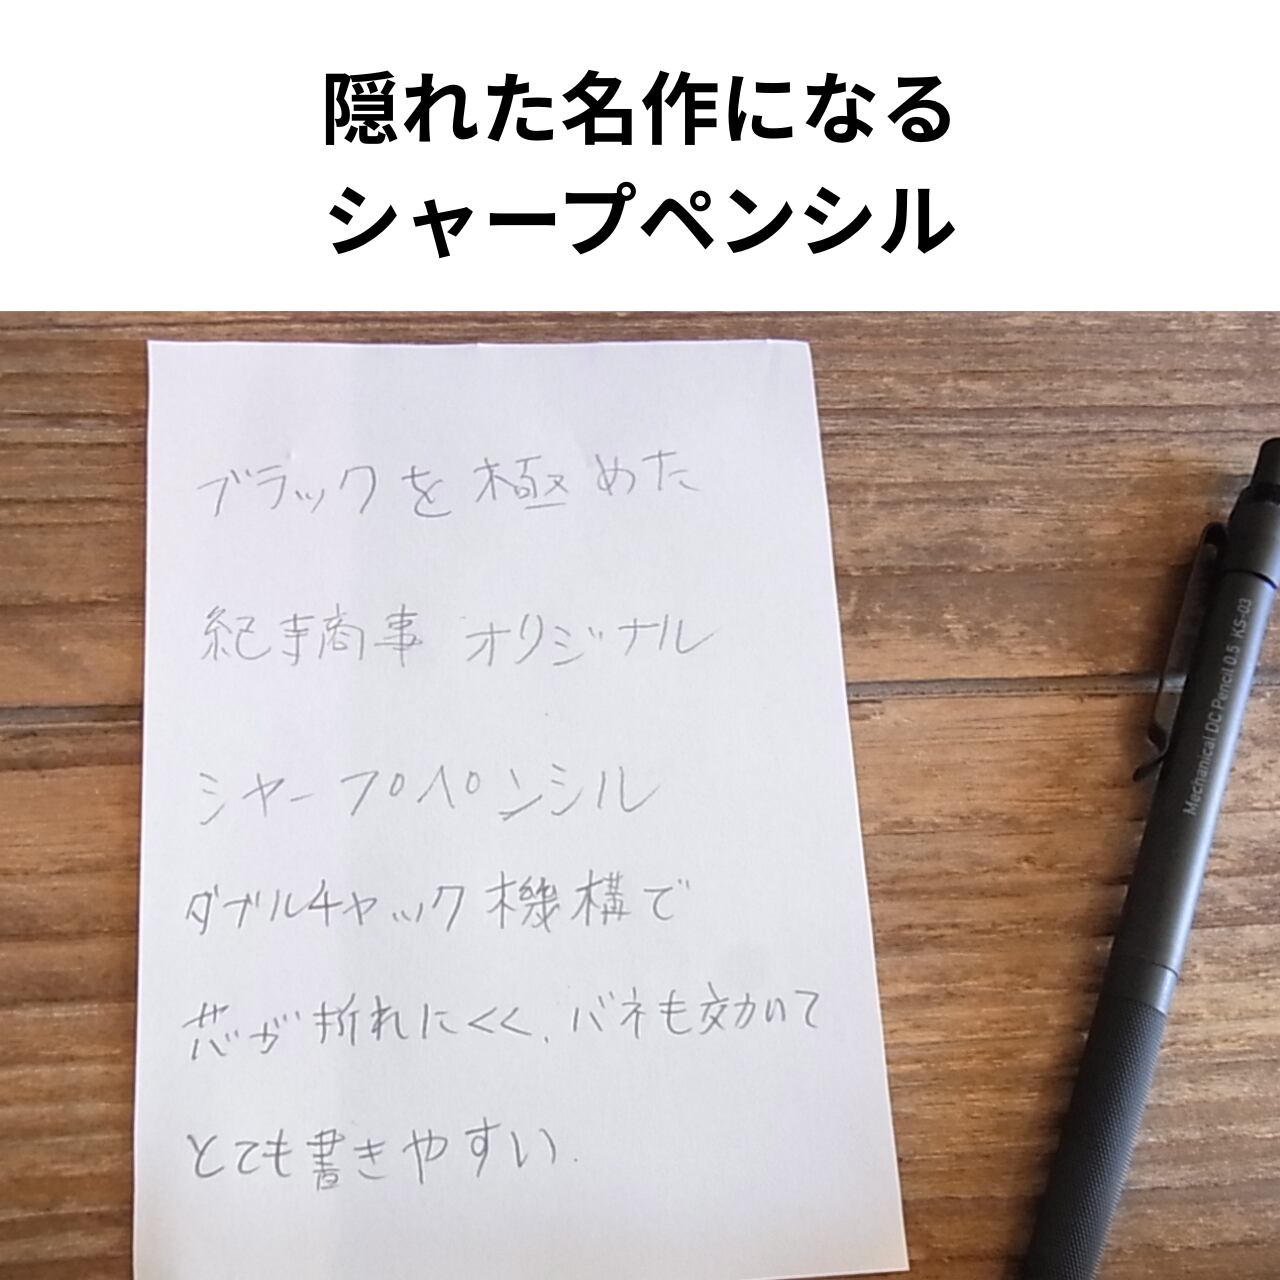 隠れた名作になる
シャープペンシル
ブラックを極めた
紀寺商事 オリジナル
シャープペンシル
ダブルチャック機構で
芯が折れにくく、バネも効いて
とても書きやすい.
Mechanical DC Pencil 0.5 KS-03